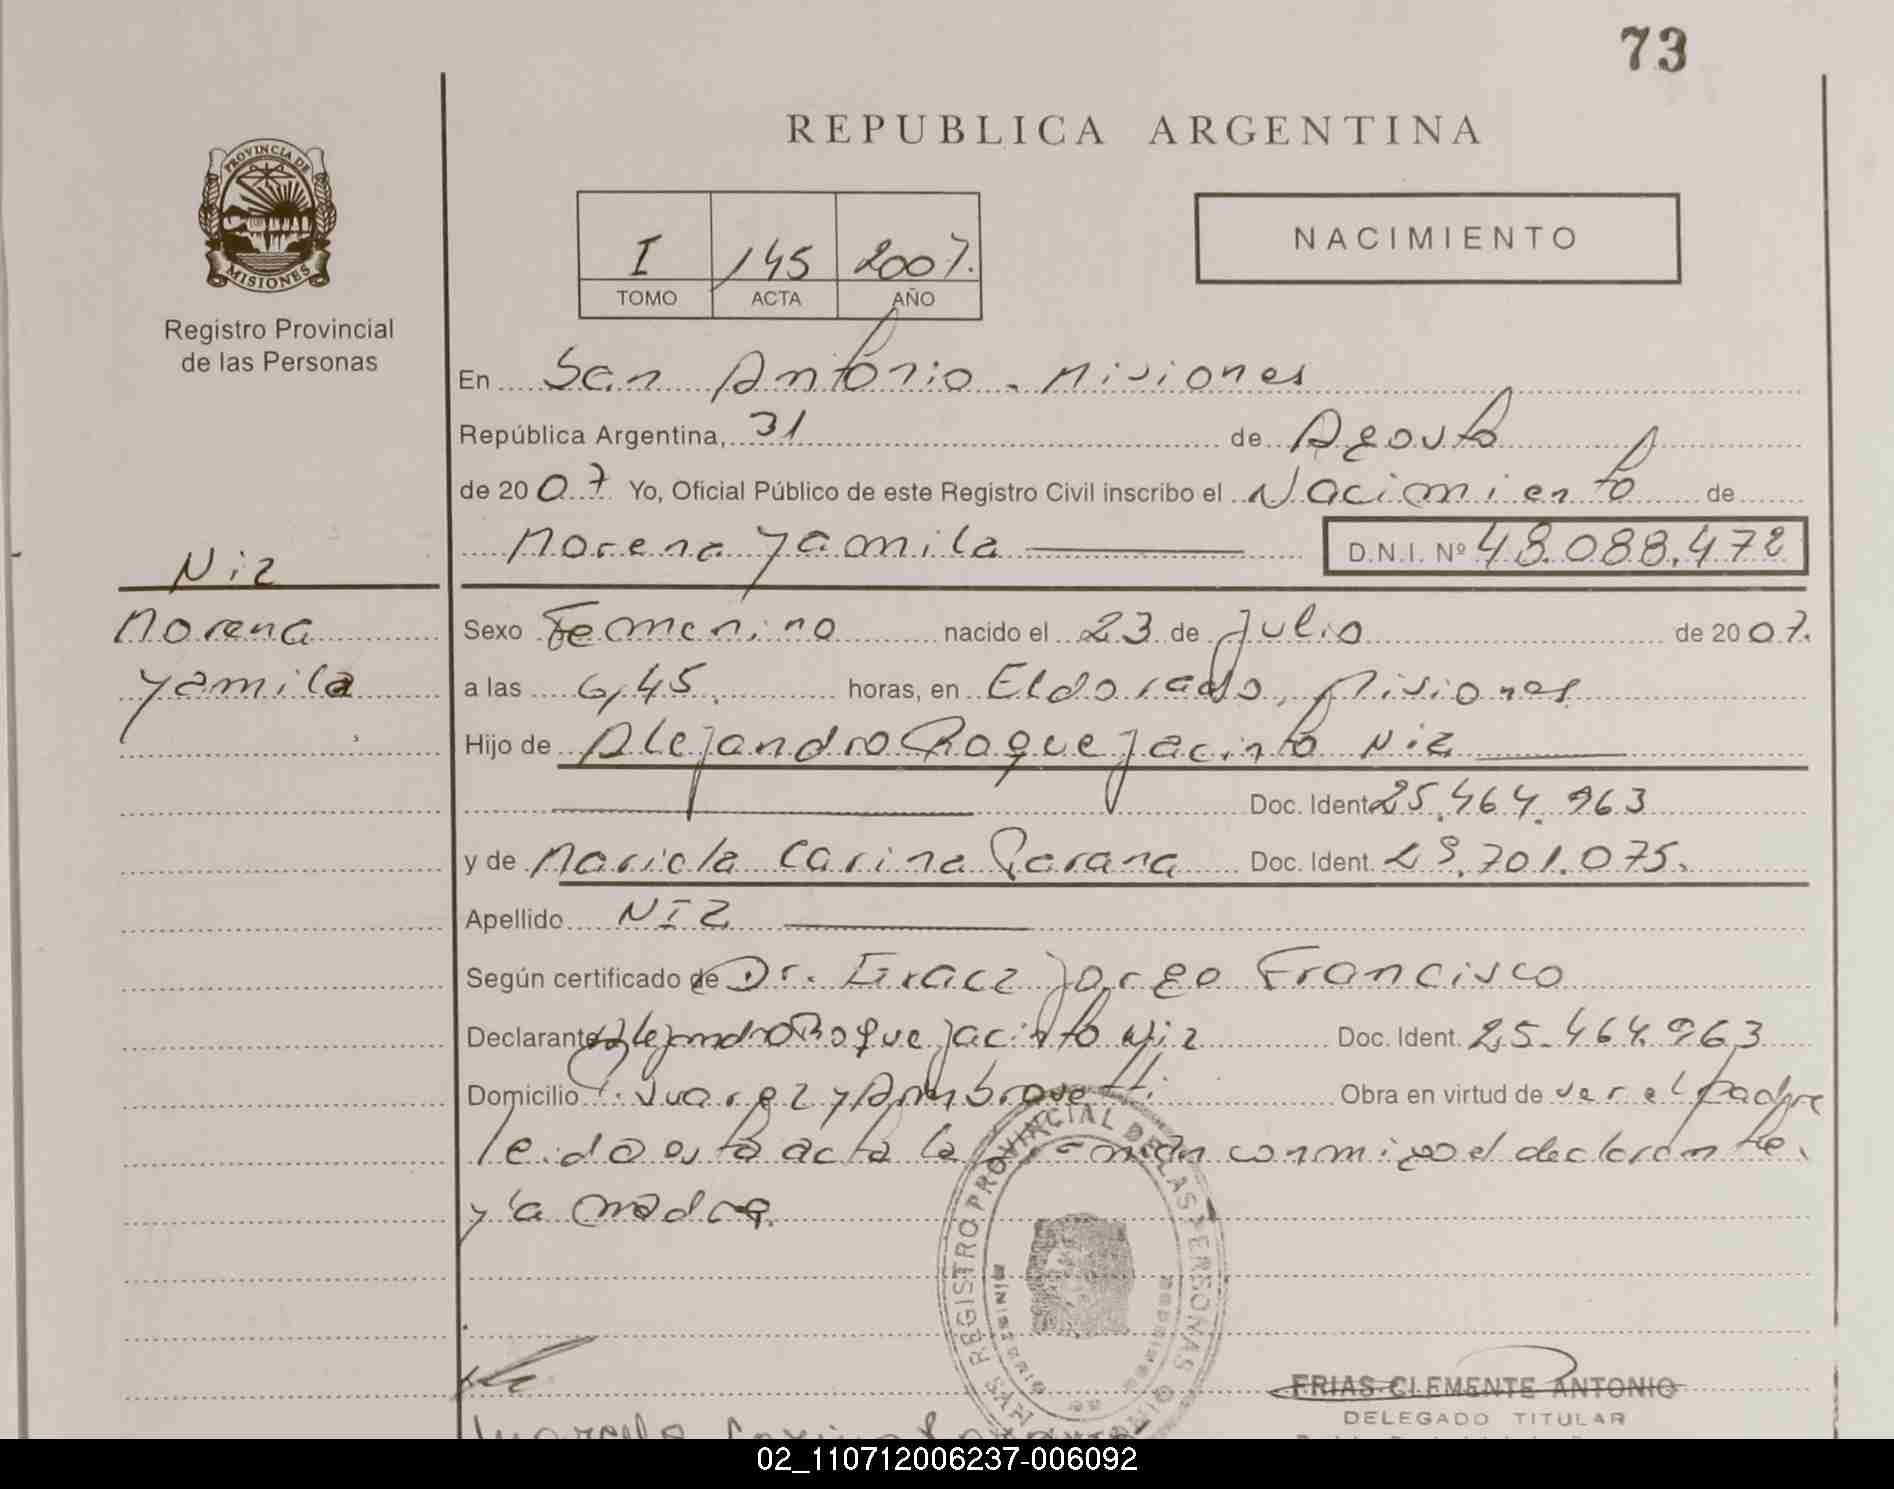 73
REPUBLICA ARGENTINA
PROVINCIA DE
MISIONES
Registro Provincial
de las Personas
I 145 2007.
TOMO ACTA AÑO
NACIMIENTO
En San Antonio - Misiones
República Argentina, 31 de Agosto
de 2007 Yo, Oficial Público de este Registro Civil inscribo el Nacimiento de
Morena Yamila D.N.I. Nº 48.088.472
Niz
Morena
Yamila
Sexo Femenino nacido el 23 de Julio de 2007.
a las 6,45 horas, en Eldorado, Misiones
Hijo de Alejandro Roque Jacinto Niz
Doc. Ident. 25.464.963
y de Mariela Carina Parana Doc. Ident. 29.701.075.
Apellido NIZ
Según certificado de Dr. Jorge Francisco
Declarante Alejandro Roque Jacinto Niz Doc. Ident. 25.464.963
Domicilio Suarez y Ambrosetti. Obra en virtud de ser el padre
leida esta acta la firman conmigo el declarante
y la madre.
REGISTRO PROVINCIAL DE LAS PERSONAS
SAN
FRIAS CLEMENTE ANTONIO
DELEGADO TITULAR
02_110712006237-006092